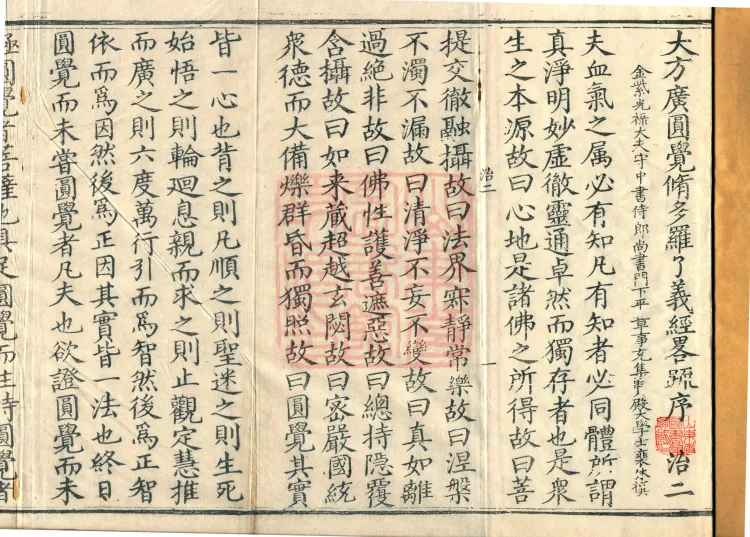 大方廣圓覺脩多羅了義經畧䟽序 治二
金紫光祿大夫守中書侍郎尚書門下平章事充集賢殿大學士裴休撰
夫血氣之属必有知凡有知者必同體所謂
真淨明妙虛徹靈通卓然而獨存者也是衆
生之本源故曰心地是諸佛之所得故曰菩
治二 一
提交徹融攝故曰法界寂靜常樂故曰涅槃
不濁不漏故曰清淨不妄不變故曰真如離
過絕非故曰佛性護善遮惡故曰總持隱覆
含攝故曰如来蔵超越玄閟故曰宻嚴國統
衆德而大備爍群昏而獨照故曰圓覺其實
皆一心也背之則凡順之則聖迷之則生死
始悟之則輪廻息親而求之則止觀定慧推
而廣之則六度萬行引而爲智然後爲正智
依而爲因然後爲正因其實皆一法也終日
圓覺而未甞圓覺者凡夫也欲證圓覺而未
極圓覺者菩薩也具足圓覺而住持圓覺者